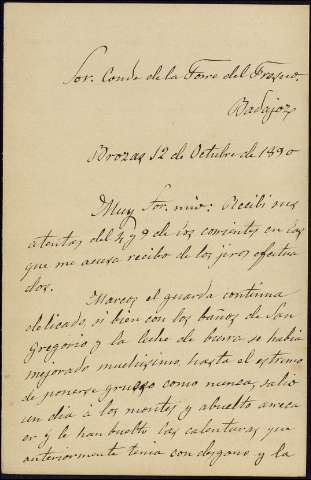 Sor. Conde de la Torre del Fresno.
Badajoz
Brozas 12 de Octubre de 1890
Muy Sor. mio: Recibi sus
atentas del 4 y 9 de los corrientes en las
que me acusa recibo de los jiros efectua
dos.
Marcos el guarda continua
delicado, si bien con los baños de San
Gregorio y la leche de burra se habia
mejorado muchisimo, hasta el estremo
de ponerse grueso como nunca, salio
un dia á los montes y abuelto a reca
er y le han buelto las calenturas que
anteriormente tenia con desgano y la